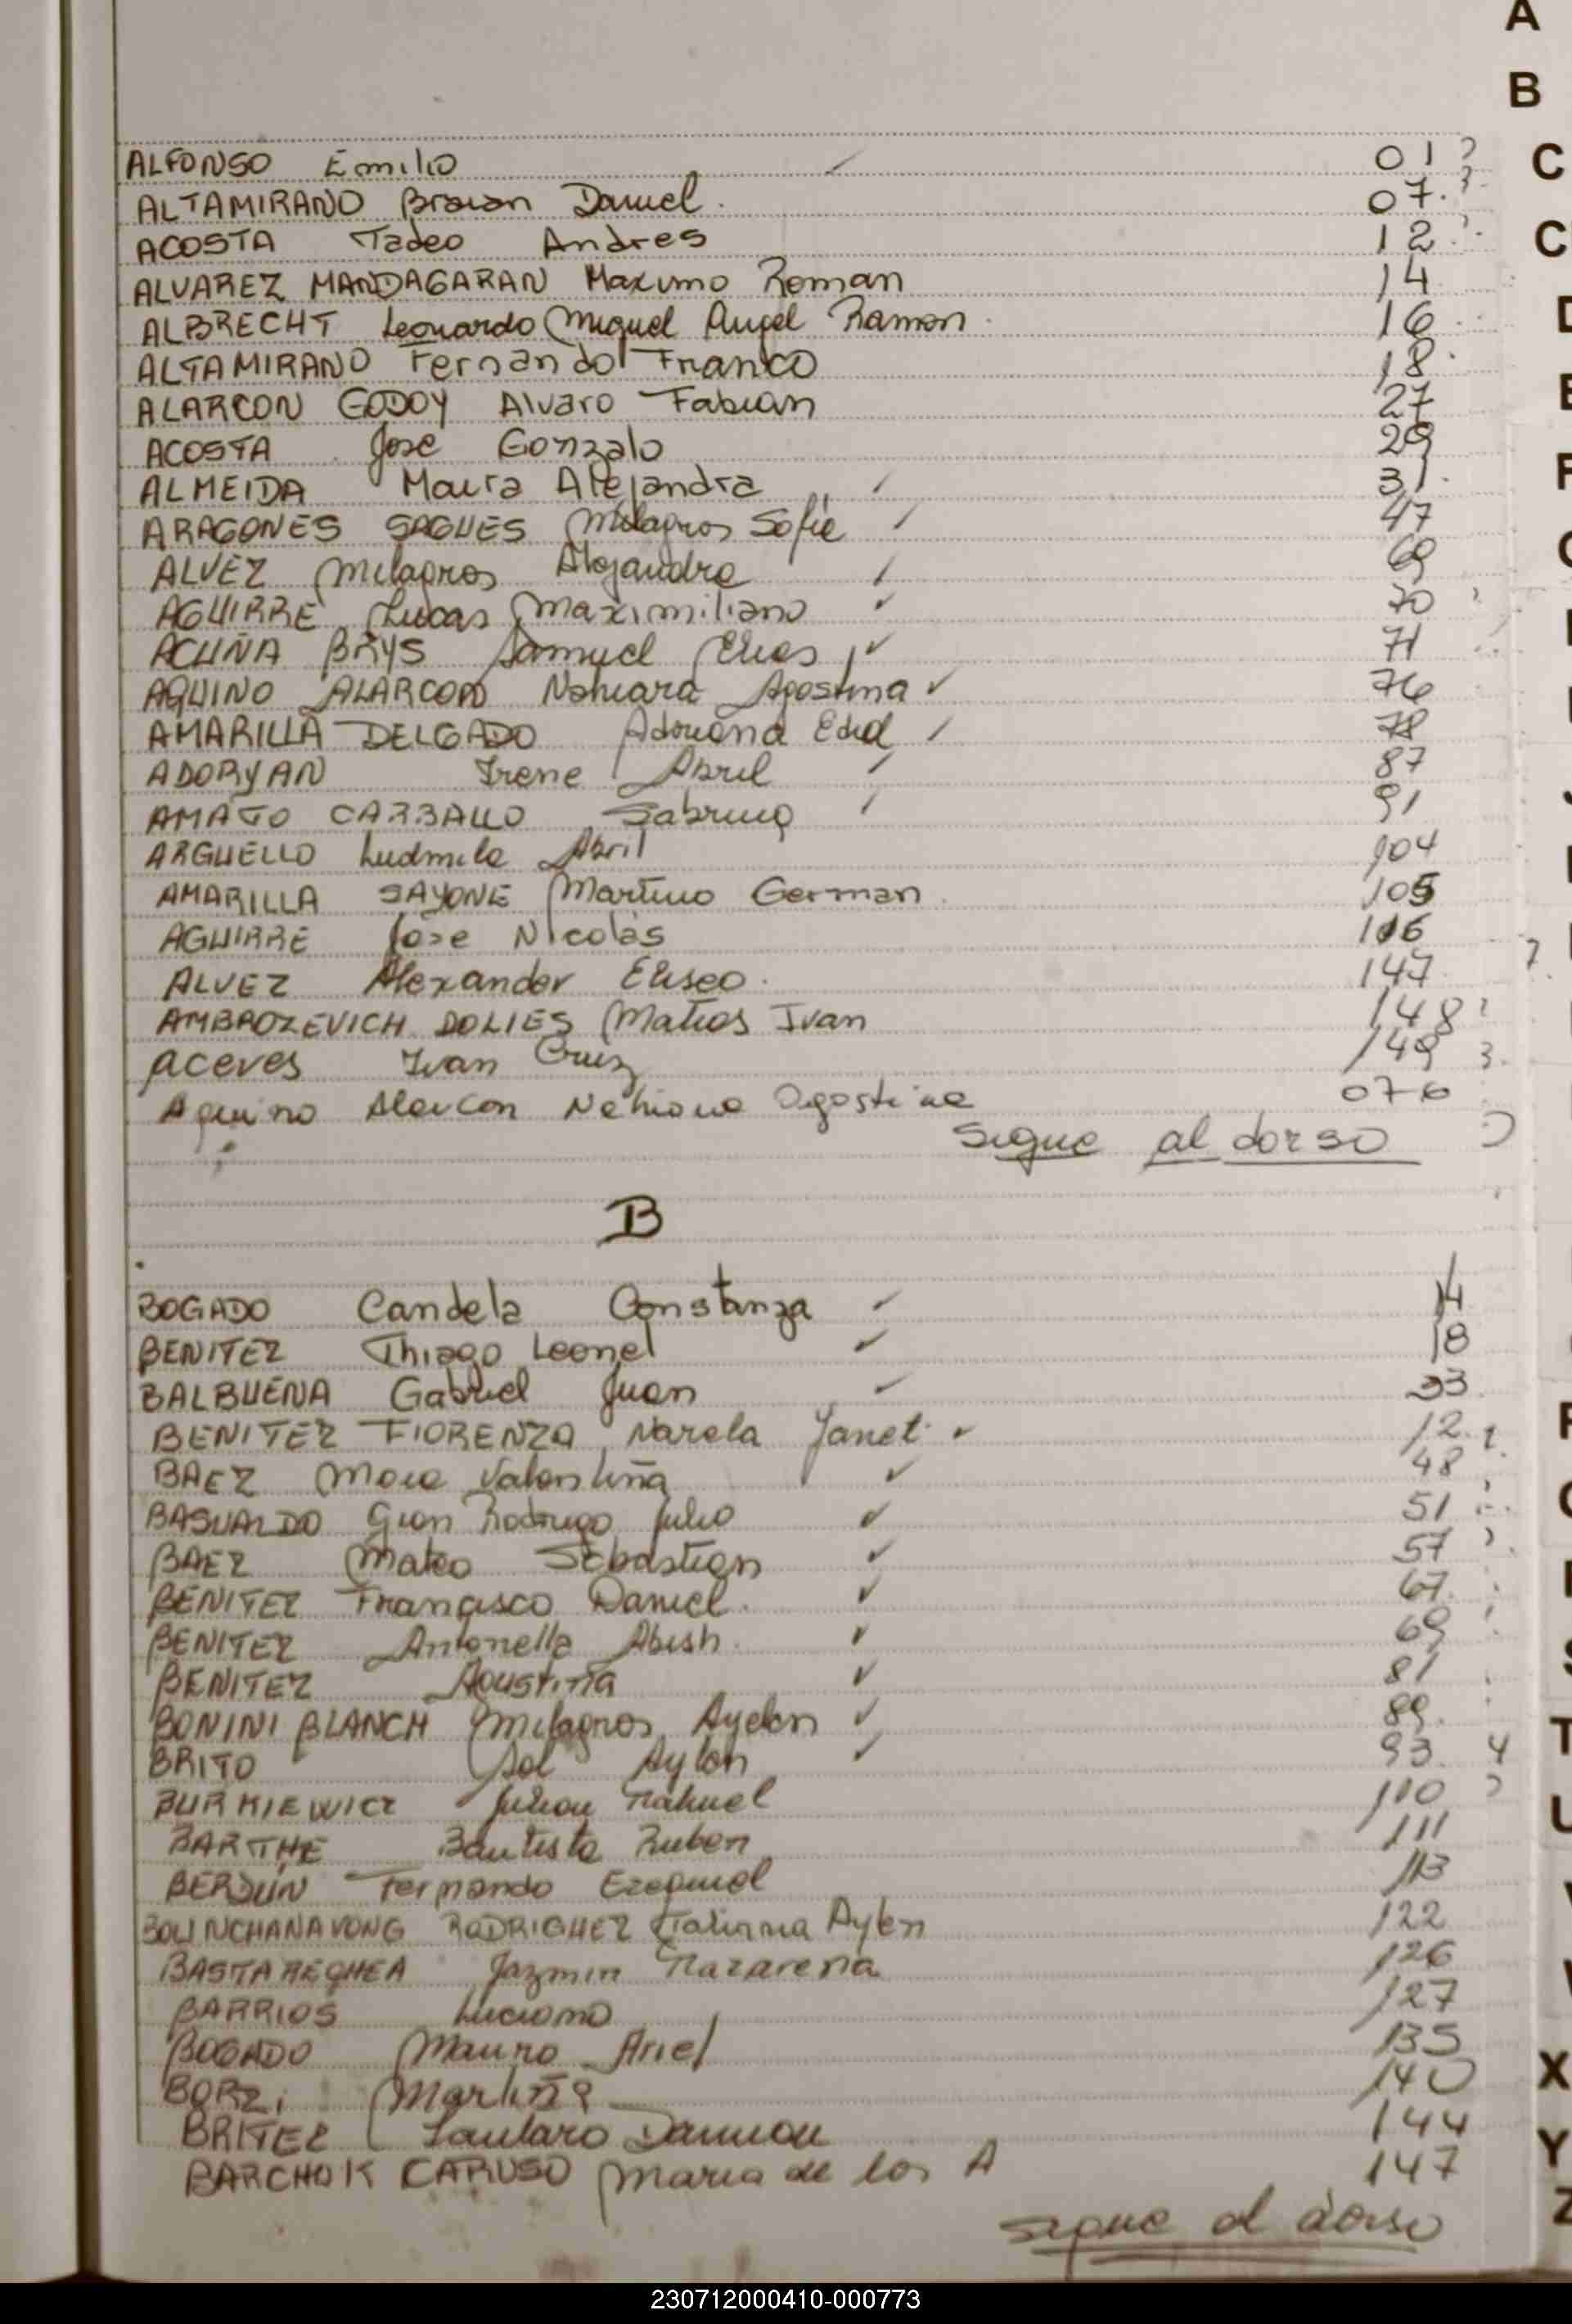 A
B
C
ALFONSO Emilio ✓ 01
ALTAMIRANO Braian Daniel. 07.
ACOSTA Tadeo Andres 12
ALVAREZ MANDAGARAN Maximo Roman 14
ALBRECHT Leonardo Miguel Angel Ramon 16
ALTAMIRANO Fernando Franco 18
ALARCON GODOY Alvaro Fabian 27
ACOSTA Jose Gonzalo 29
ALMEIDA Maira Alejandra ✓ 31
ARAGONES SAGUES Milagros Sofie ✓ 47
ALVEZ Milagros Alejandra ✓ 69
AGUIRRE Lucas Maximiliano ✓ 70
ACUÑA BRYS Samuel Elias ✓ 71
AQUINO ALARCON Nahiara Agostina ✓ 76
AMARILLA DELGADO Adriana Edid ✓ 78
ADORYAN Irene Abril ✓ 87
AMATO CARBALLO Sabrina ✓ 91
ARGUELLO Ludmila Abril 104
AMARILLA SAYONE Martino German 105
AGUIRRE Jose Nicolas 116
ALVEZ Alexander Eliseo. 147
AMBROZEVICH DOLIES Matias Ivan 148
aceves Ivan Cruz 149
Aquino Alarcon Nahiara Agostina 076
Sigue al dorso
B
BOGADO Candela Constanza ✓ 14
BENITEZ Thiago Leonel ✓ 18
BALBUENA Gabriel Juan ✓ 33
BENITEZ FIORENZA Narela Janet ✓ 12
BAEZ Maia Valentina ✓ 48
BASUALDO Gian Rodrigo Julio ✓ 51
BAEZ Mateo Sebastian ✓ 57
BENITEZ Francisco Daniel. ✓ 67
BENITEZ Antonella Abish. ✓ 69
BENITEZ Agustina ✓ 81
BONINI BLANCH Milagros Ayelen ✓ 89
BRITO Sol Aylen ✓ 93
BURKIEWICZ Julian Nahuel 110
BARTHE Bautista Ruben 111
BERDUN Fernando Ezequiel 113
BOUNCHANAVONG RODRIGUEZ Tatiana Aylen 122
BASTARECHEA Jazmin Nazarena 126
BARRIOS Luciano 127
BOGADO Mauro Ariel 135
BORZI Martina 140
BRITEZ Lautaro Damian 144
BARCHUK CARUSO Maria de los A 147
sigue al dorso
X
Y
Z
230712000410-000773